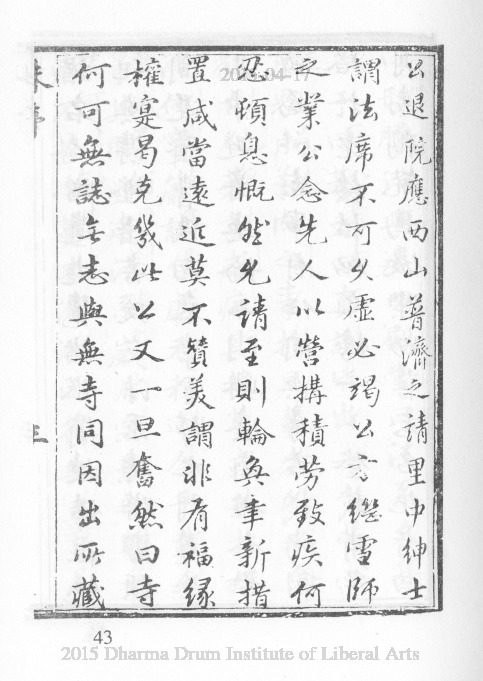 公退院應西山普濟之請里中紳士
謂法席不可久虛必竭公言繼雪師
之業公念先人以營搆積劳致疾何
忍頓息慨然允請至則輪奐聿新措
置咸當遠近莫不贊美謂非有福緣
權寔曷克幾此公又一旦奮然曰寺
何可無誌無志與無寺同因出所藏
朱序
三
43
2015 Dharma Drum Institute of Liberal Arts